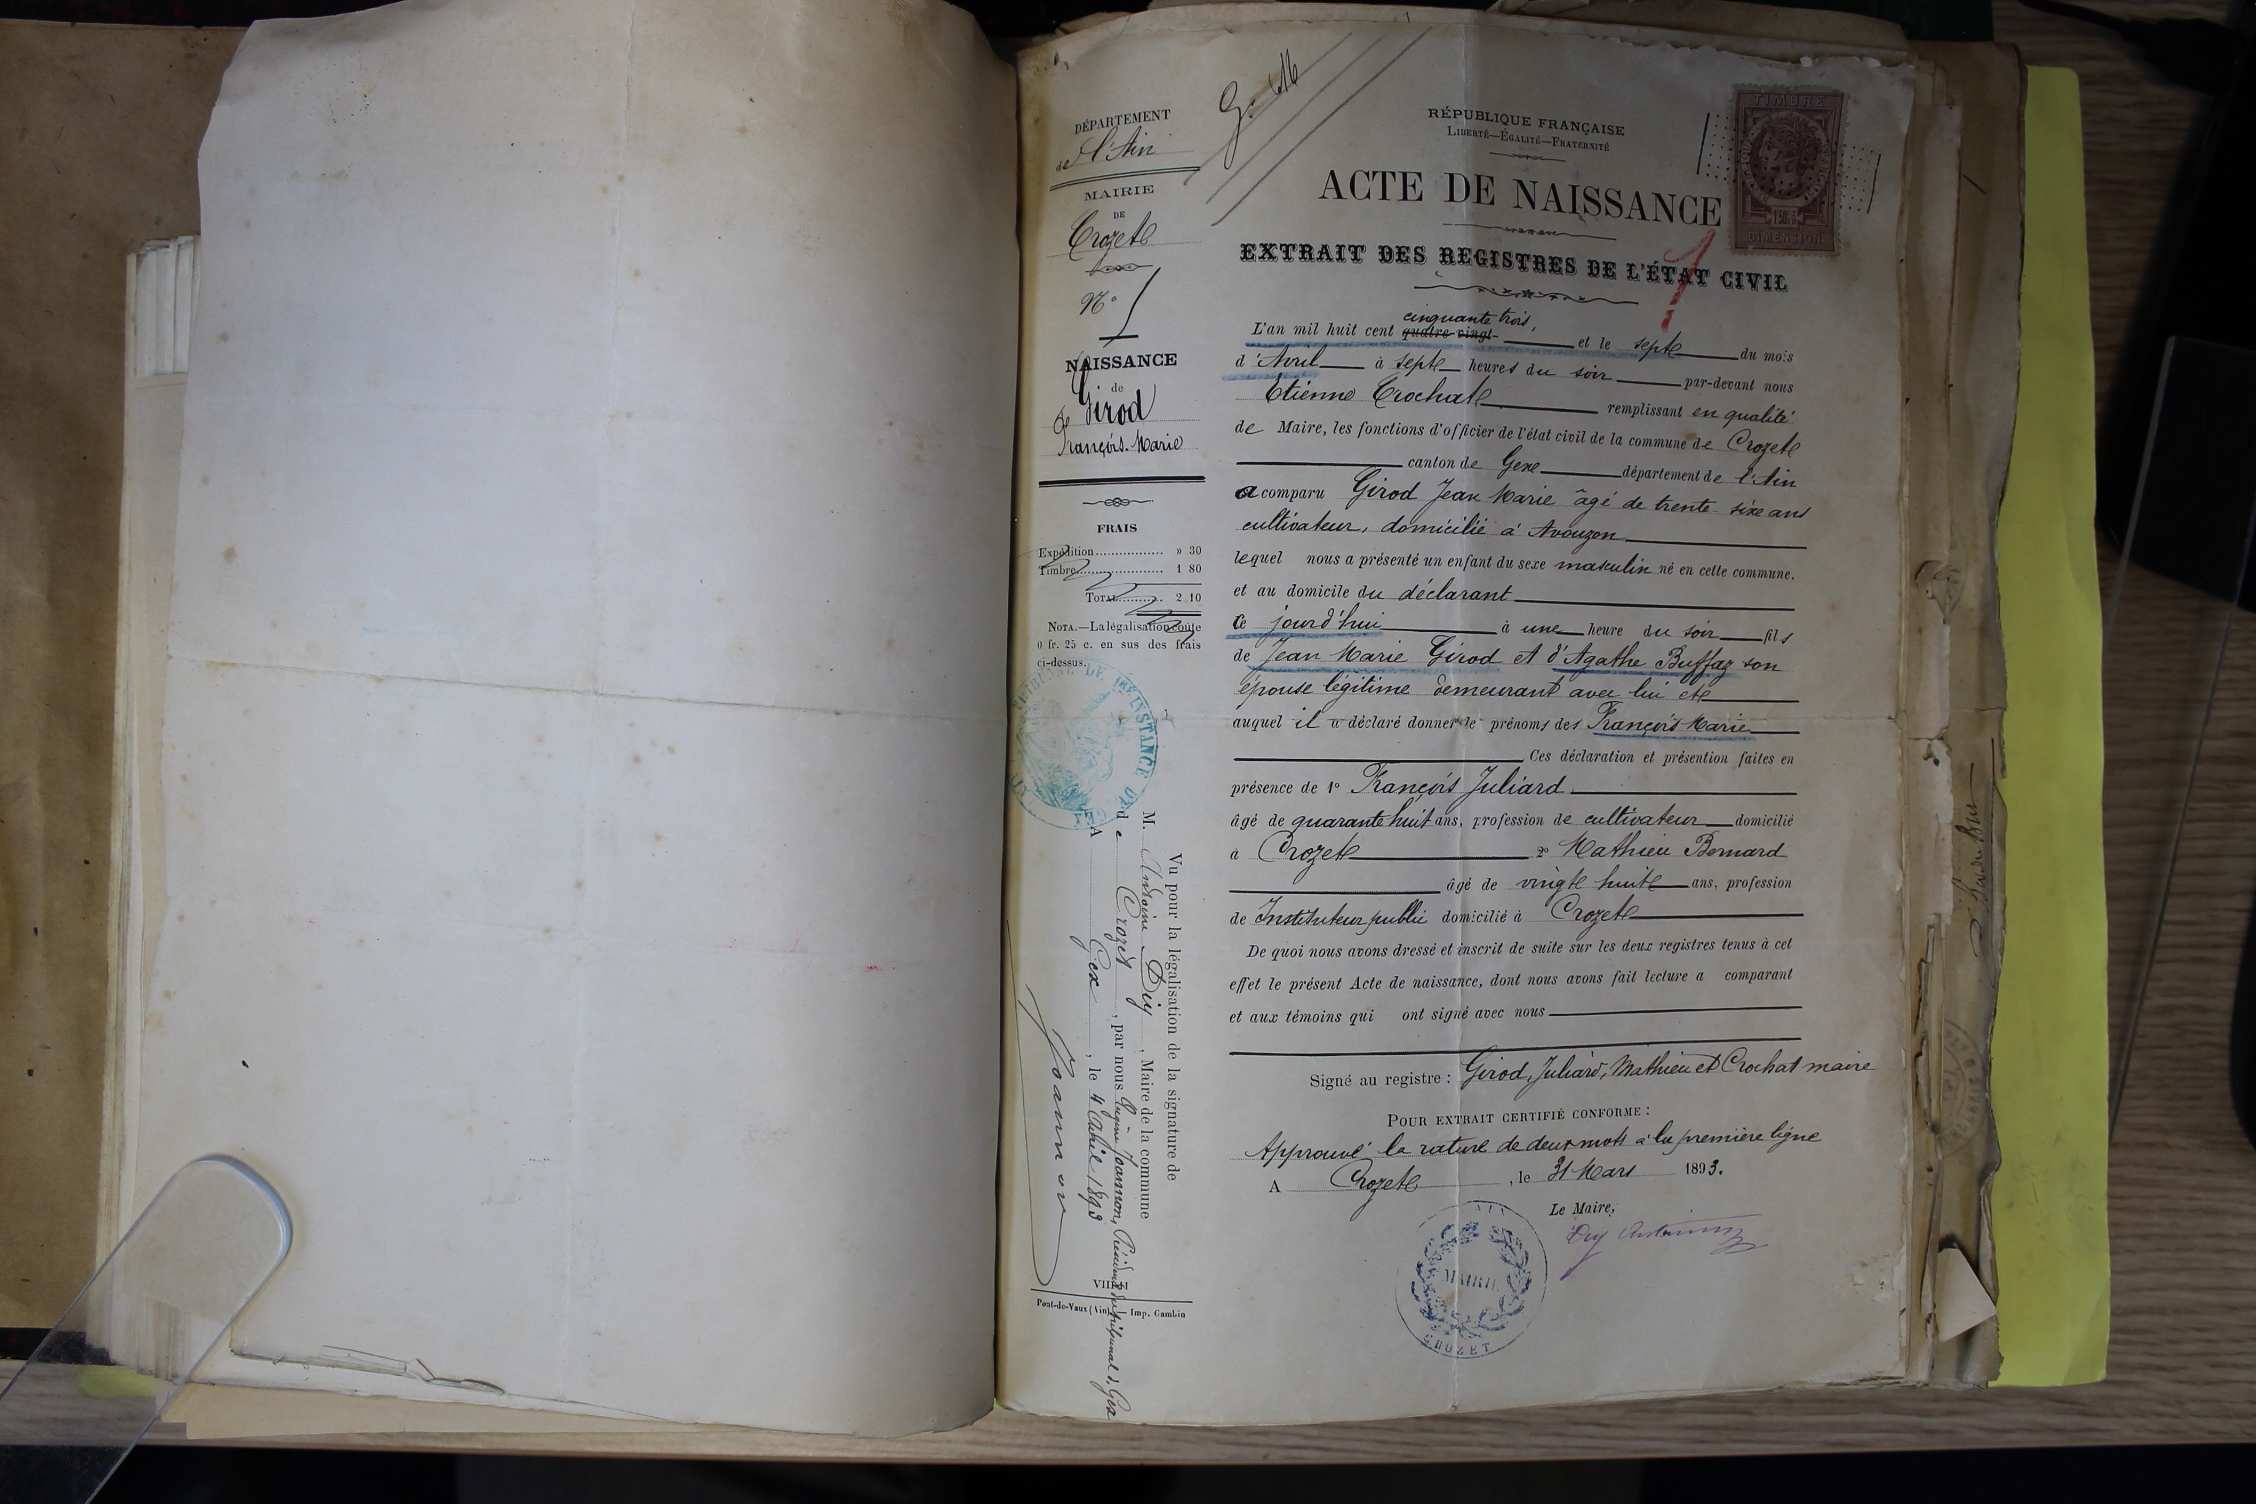 DÉPARTEMENT
de l'Ain
MAIRIE
DE
Crozet
N°
NAISSANCE
de
Girod
François-Marie
FRAIS
Expédition................ » 30
Timbre...................... 1 80
TOTAL............ 2 10
NOTA.—La légalisation coûte
0 fr. 25 c. en sus des frais
ci-dessus.
Vu pour la légalisation de la signature de
M. Antoine Diy, Maire de la commune
de Crozet, par nous Eugène Joannon, Président du tribunal d. Gex
A Gex, le 4 Avril 1893
Joannon
Pont-de-Vaux (Ain) — Imp. Gambin
G. 616
RÉPUBLIQUE FRANÇAISE
LIBERTÉ—ÉGALITÉ—FRATERNITÉ
TIMBRE
DIMENSION
ACTE DE NAISSANCE
1
EXTRAIT DES REGISTRES DE L'ÉTAT CIVIL
cinquante trois,
L'an mil huit cent quatre-vingt- et le sept du mois
d'Avril à sept heures du soir par-devant nous
Etienne Crochat remplissant en qualité
de Maire, les fonctions d'officier de l'état civil de la commune de Crozet
canton de Gex département de l'Ain
a comparu Girod Jean Marie âgé de trente-six ans
cultivateur, domicilié à Avouzon
lequel nous a présenté un enfant du sexe masculin né en cette commune.
et au domicile du déclarant
ce jourd'hui à une heure du soir fils
de Jean Marie Girod et d'Agathe Buffaz son
épouse légitime demeurant avec lui et
auquel il a déclaré donner le prénoms des François Marie
Ces déclaration et présention faites en
présence de 1° François Juliard
âgé de quarante huit ans, profession de cultivateur domicilié
à Crozet 2° Mathieu Bernard
âgé de vingt huit ans, profession
de Instituteur public domicilié à Crozet
De quoi nous avons dressé et inscrit de suite sur les deux registres tenus à cet
effet le présent Acte de naissance, dont nous avons fait lecture a comparant
et aux témoins qui ont signé avec nous
Signé au registre : Girod, Juliard, Mathieu et Crochat maire
POUR EXTRAIT CERTIFIÉ CONFORME :
Approuvé la rature de deux mots à la première ligne
A Crozet, le 31 Mars 1893.
Le Maire,
Diy Antoine
MAIRIE
CROZET